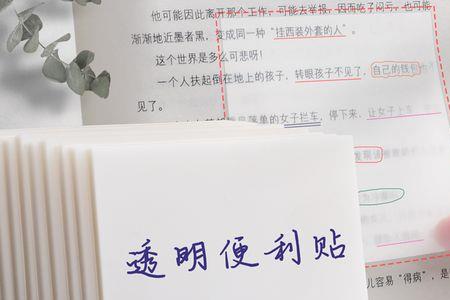 他可能因此离开那个工作，可能去举报，因而吃了闷亏，也可能
渐渐地近墨者黑，变成同一种“挂西装外套的人”。
这个世界是多么可悲呀！
一个人扶起倒在地上的孩子，转眼孩子不见了，自己的钱包也不
见了。
落单的女子拦车，停下来，让女子上车
发现该
儿容易“得病”，是
透明便利贴